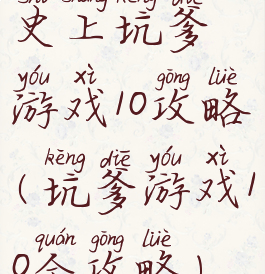 shǐ shàng kēng diē
史上坑爹
yóu xì gōng lüè
游戏10攻略
kēng diē yóu xì
(坑爹游戏1
quán gōng lüè
0全攻略)